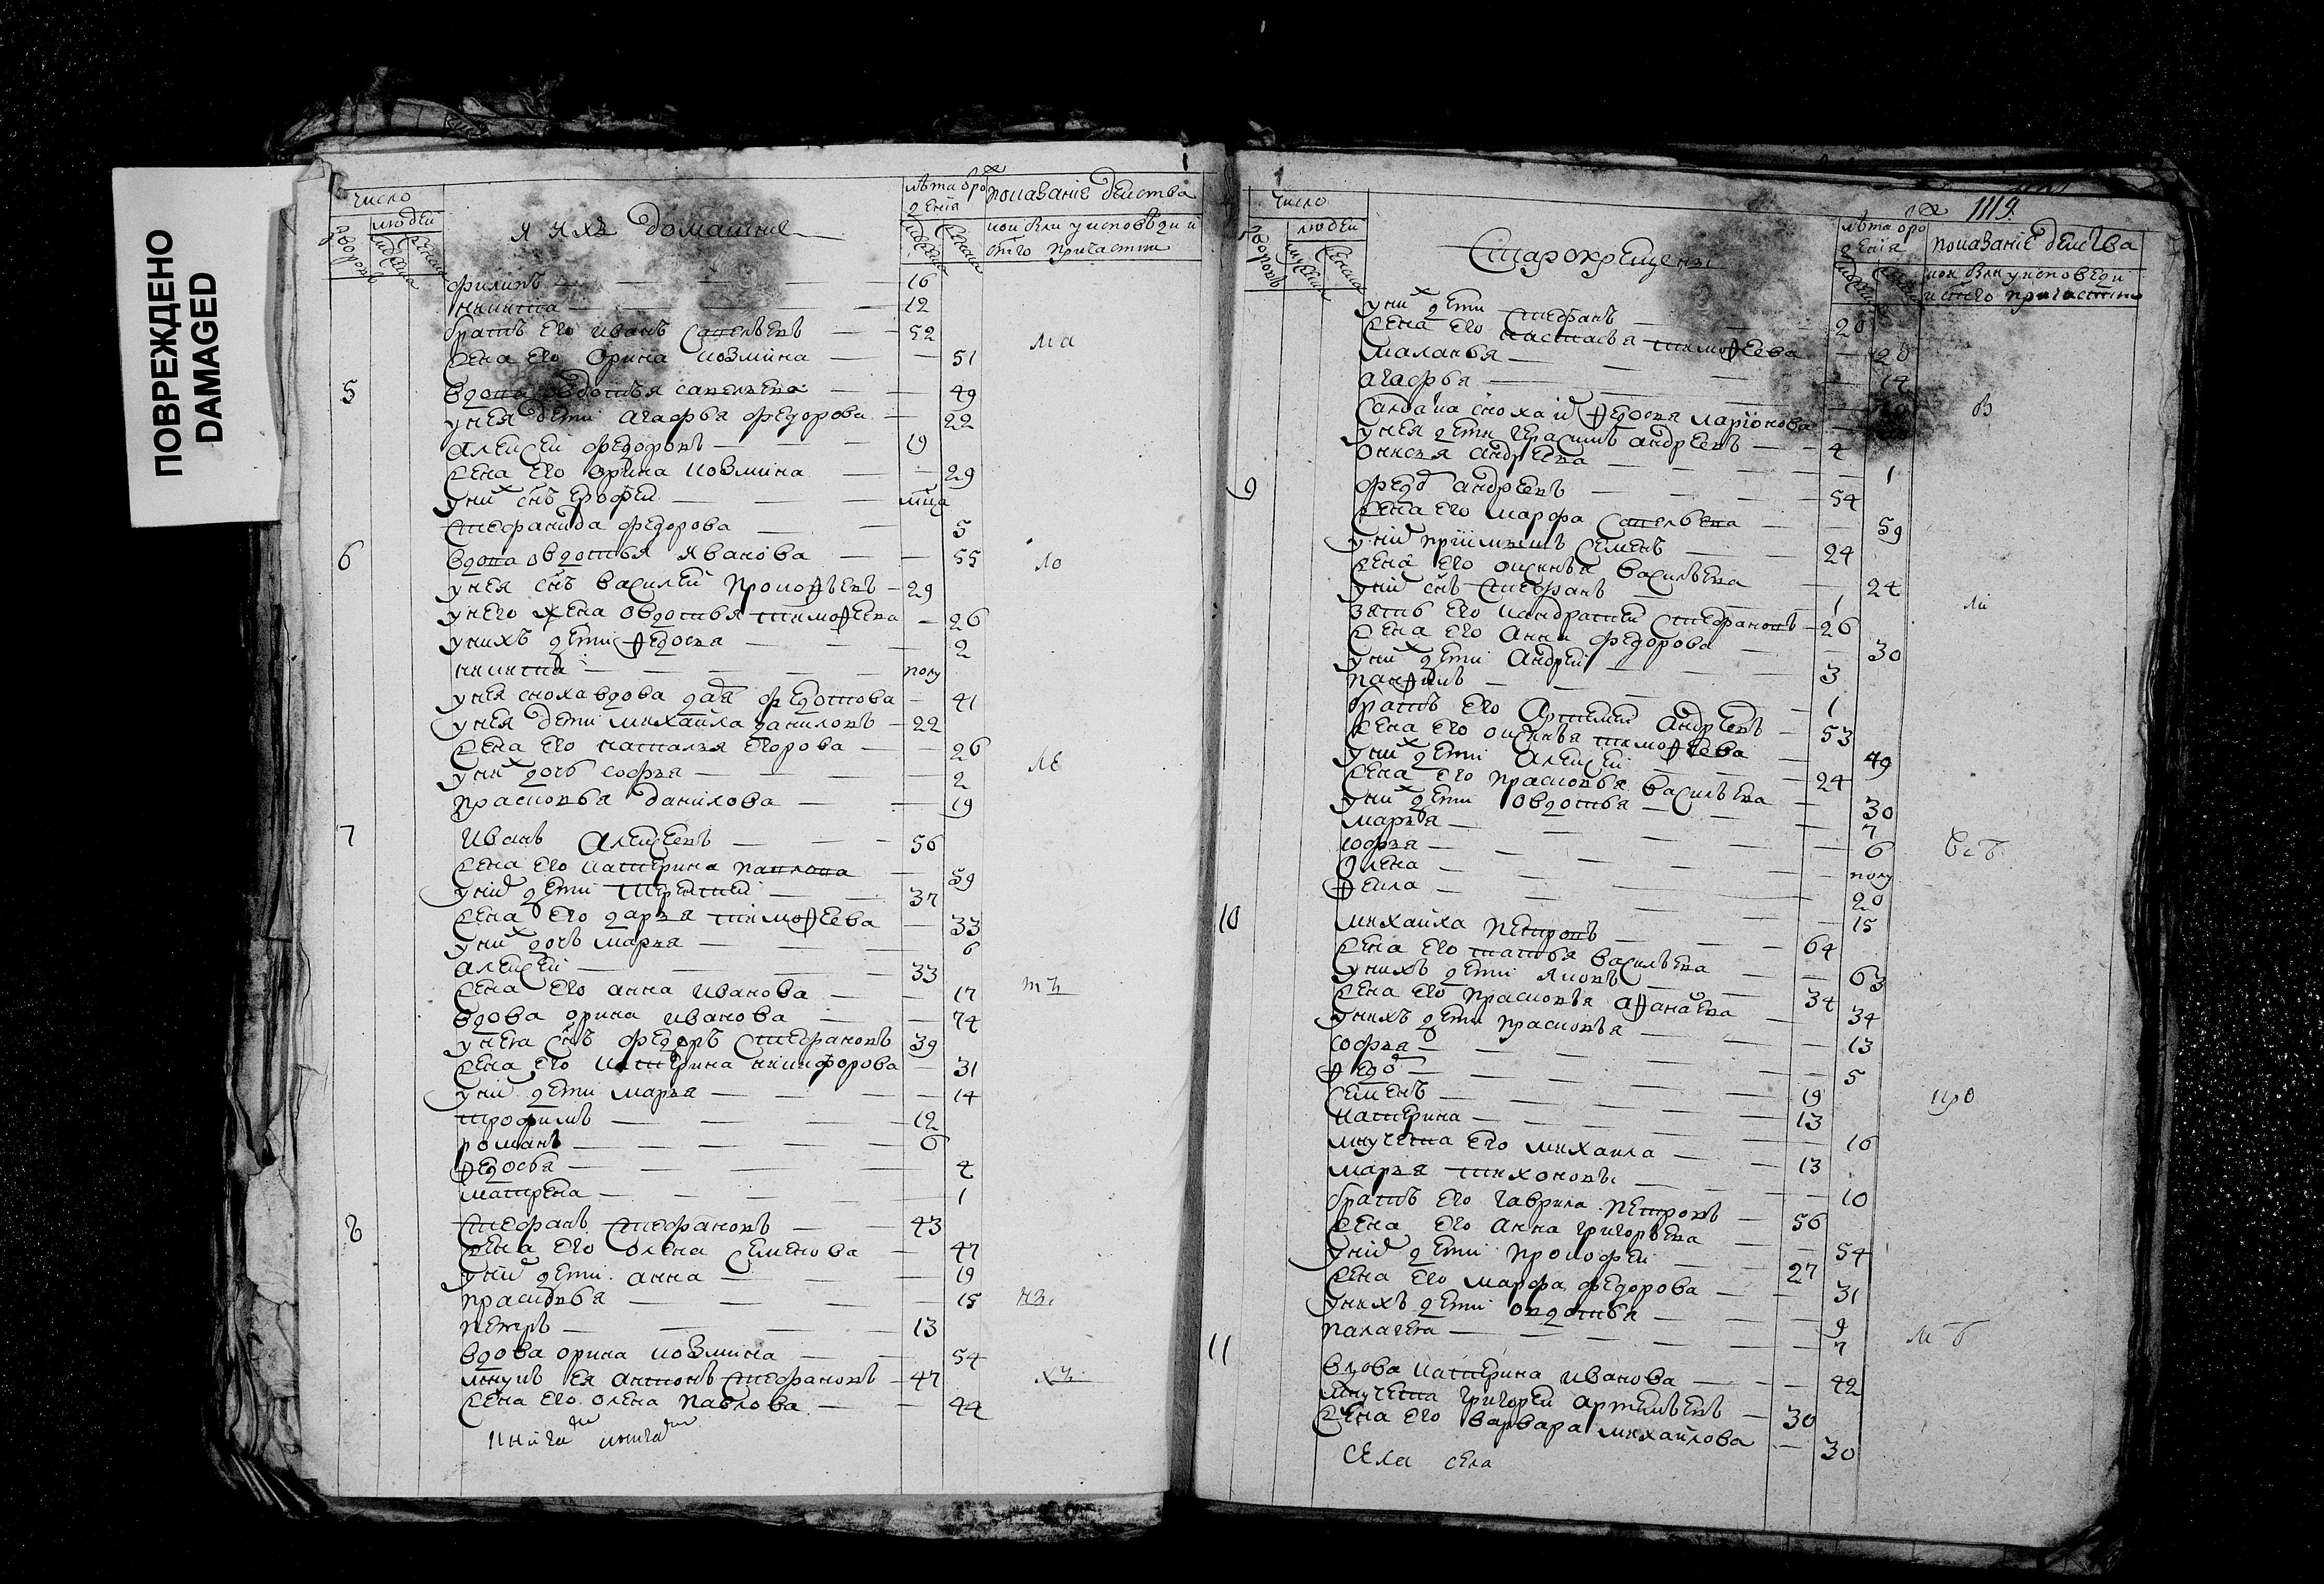 ПОВРЕЖДЕНО
DAMAGED
число
людей
дворовъ
и ихъ домашние
лѣта оро
ждения
показание действа
кои были у исповеди и
стго причастия
филипъ 16
никита 12
братъ его иванъ савельевъ 52
жена его орина козмина 51
5 вдова овдотья савельева 49
у нея дети агафья федорова 22
алексей федоровъ 19
жена его орина козмина 29
у них снъ ерофей мца
стефанида федорова 5
6 вдова овдотья иванова 55
у нея снъ василей прокофьевъ 29
у него жена овдотья тимофеева 26
у нихъ дети федосья 2
никита полу
у нея сноха вдова дая федотова 41
у нея дети михайла даниловъ 22
жена его наталья егорова 26
у них дочь софья 2
прасковья данилова 19
7 иванъ алексеевъ 56
жена его катерина павлова 59
у них дети терентий 37
жена его дарья тимофеева 33
у них дочь марья 6
алексей 33
жена его анна иванова 17
вдова орина иванова 74
у нея снъ федоръ стефановъ 39
жена его катерина никифорова 31
у них дети марья 14
трофимъ 12
романъ 6
федосья 4
матрена 1
8 стефанъ стефановъ 43
жена его олена семенова 47
у них дети анна 19
прасковья 15
петръ 13
вдова орина козмина 54
внукъ ея антонъ стефановъ 47
жена его олена павлова 44
книга книга
1119
число
людей
дворовъ
Старокрещены
лѣта оро
ждения
показание действа
кои были у исповеди
и стго причастия
у них дети стефанъ 20
жена его настасья тимофеева 20
маланья 14
агафья
салдака сноха федосья ларионова
у нея дети герасимъ андреевъ 4
онисья андреева 1
9 федо андреевъ 54
жена его марфа савельева 59
у них приимышъ семенъ 24
жена его оксинья васильева 24
у них снъ стефанъ 1
зять его кандратей стефановъ 26
жена его анна федорова 30
у них дети андрей 3
панфилъ 1
братъ его артемий андреевъ 53
жена его оксинья тимофеева 49
у них дети алексей 24
жена его прасковья васильева 30
у них дети овдотья 7
марья 6
софья полу
олена 20
фекла 15
10 михайла петровъ 64
жена его татья васильева 63
у нихъ дети яковъ 34
жена его прасковья афанаева 34
у нихъ дети прасковья 13
софья 5
федо 19
семенъ 13
катерина 16
внучета его михаила 13
марья тихоновы 10
братъ его гаврила петровъ 56
жена его анна григорьева 54
у них дети прокофей 27
жена его марфа федорова 31
у нихъ дети овдотья 9
палагея 7
11 вдова катерина иванова 42
внучета григорей артемьевъ 30
жена его варвара михайлова 30
села села